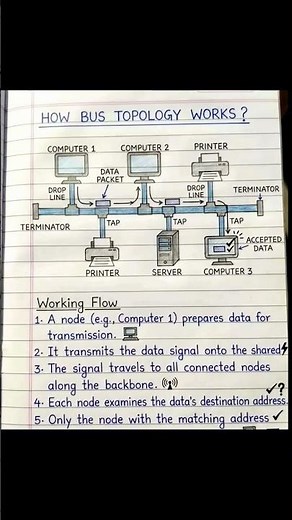 HOW BUS TOPOLOGY WORKS?
COMPUTER 1
COMPUTER 2
PRINTER
DATA
PACKET
DROP
LINE
DROP
LINE
TERMINATOR
TERMINATOR
TAP
TAP
TAP
ACCEPTED
DATA
PRINTER
SERVER
COMPUTER 3
Working Flow
1. A node (e.g., Computer 1) prepares data for
transmission.
2. It transmits the data signal onto the shared
3. The signal travels to all connected nodes
along the backbone.
4. Each node examines the data's destination address.
5. Only the node with the matching address